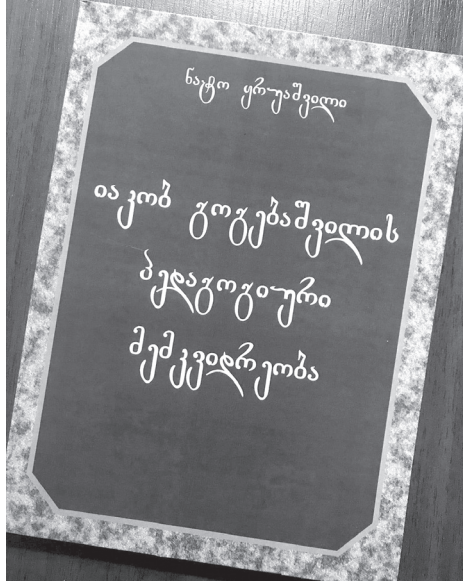 ნატო ყრუაშვილი
იაკობ გოგებაშვილის
პედაგოგიური
მემკვიდრეობა